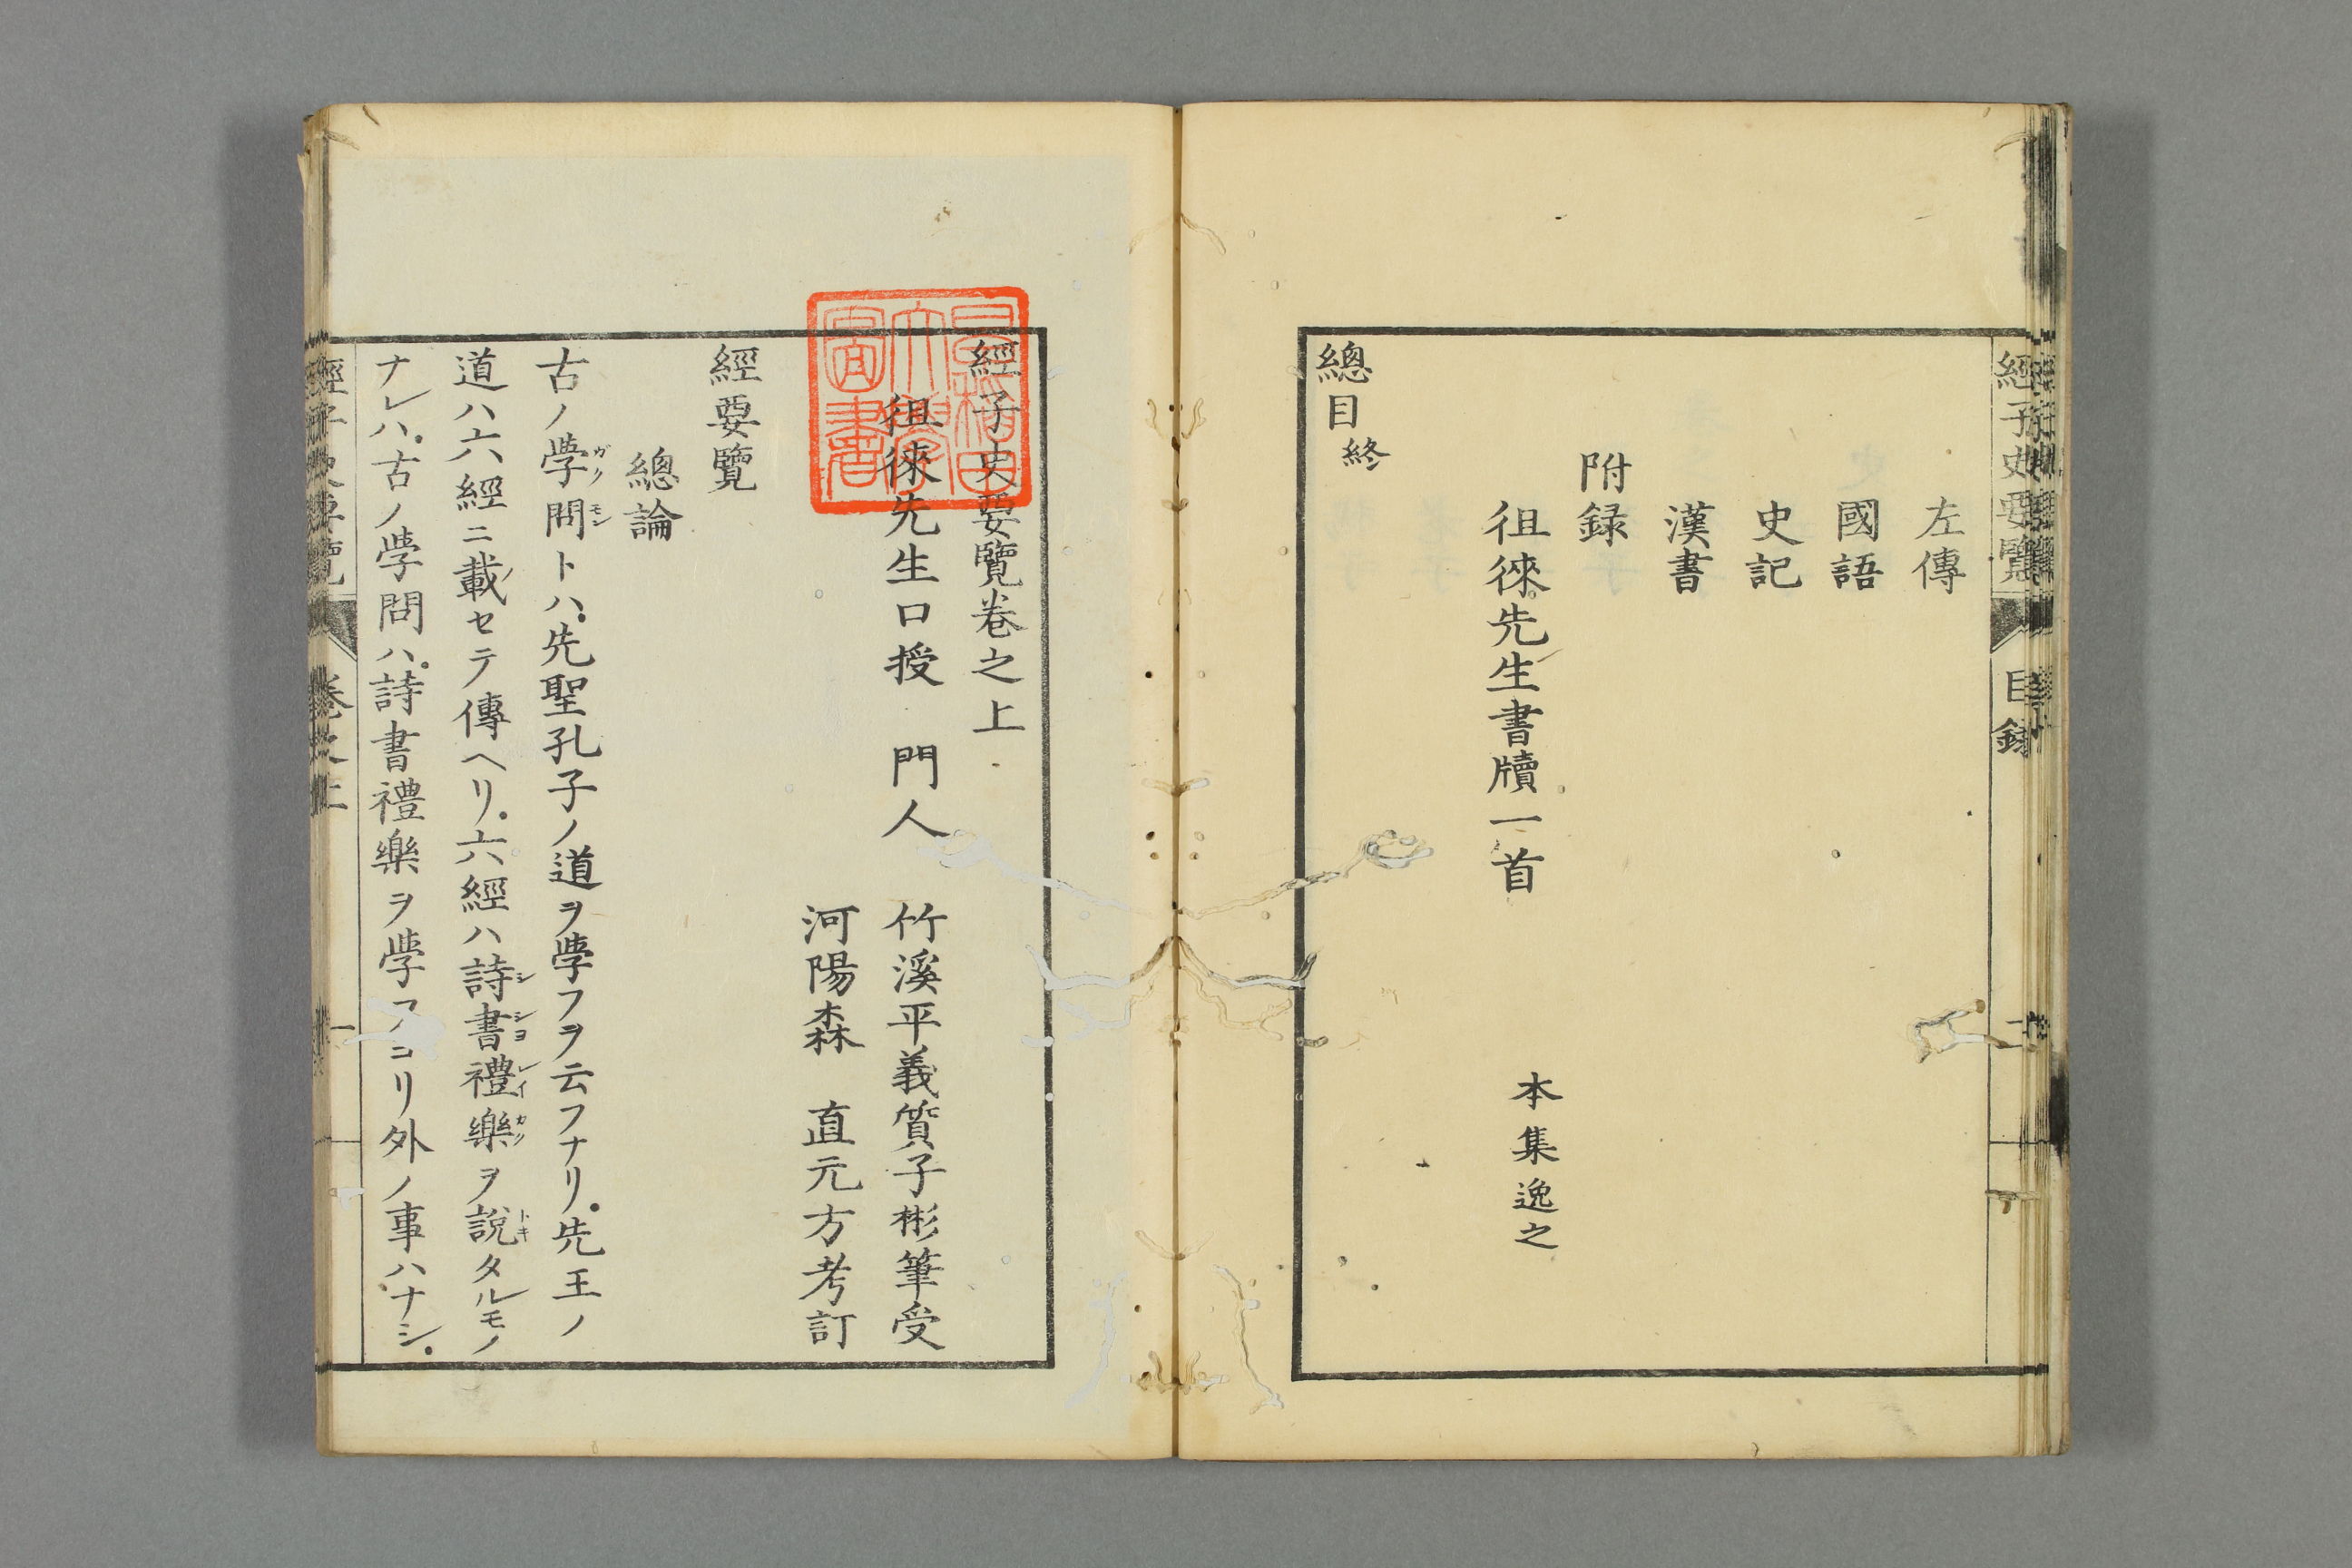 經子史要覽
目錄
二
左傳
國語
史記
漢書
附録
徂徠先生書牘一首
本集逸之
總目終
早稲田
大學
圖書
經子史要覽卷之上
徂徠先生口授 門人 竹溪平義質子彬筆受
河陽森 直元方考訂
經要覽
總論
古ノ學問トハ。先聖孔子ノ道ヲ學フヲ云フナリ。先王ノ
ガク モン
道ハ六經ニ載セテ傳ヘリ。六經ハ詩書禮樂ヲ說タルモノ
ノ シ シヨ レイ ガク トキ
ナレハ。古ノ學問ハ。詩書禮樂ヲ學フヨリ外ノ事ハナシ。
經子史要覽
卷之上
一